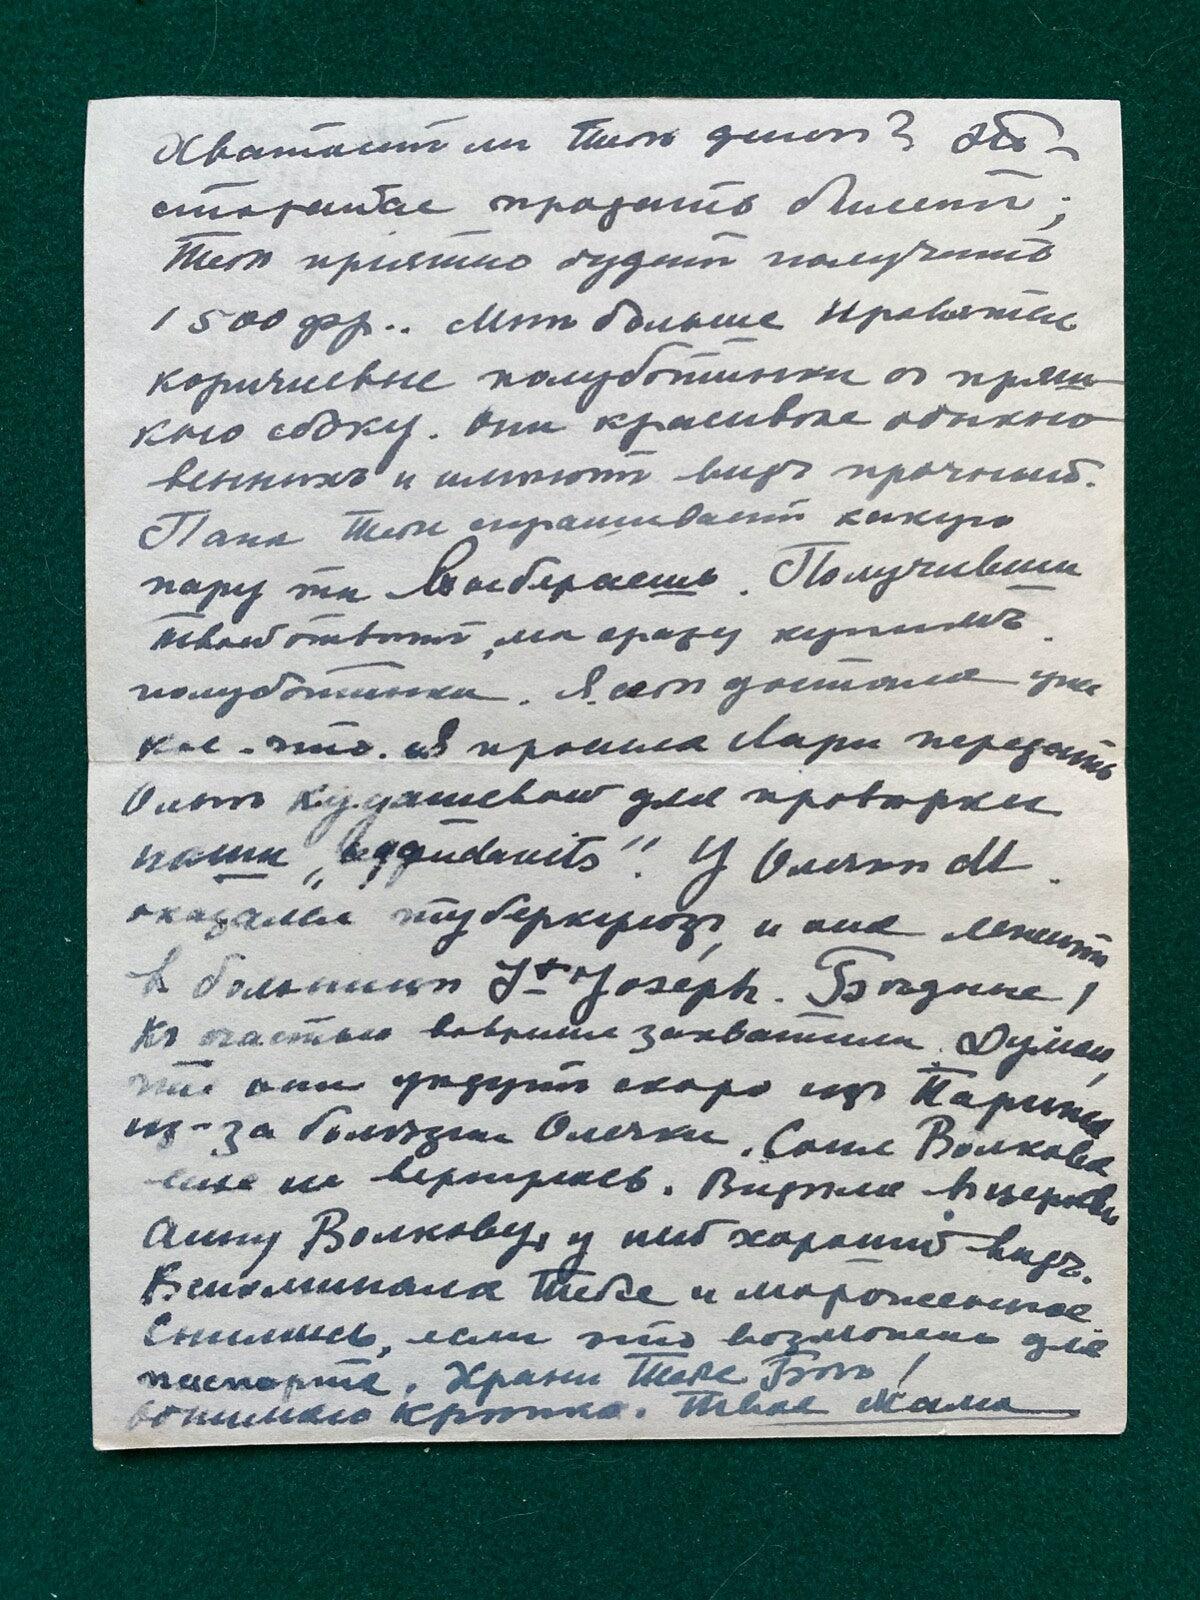 Хватаетъ ли Тебѣ денегъ? По-
старайся продать билетъ;
Тебѣ пріятно будетъ получить
1500 фр.. Мнѣ больше нравятся
коричневые полуботинки
кою сбоку. Они красивѣе обыкно
венныхъ и имѣютъ видъ прочный.
Папа Тебя спрашиваетъ какую
пару ты выбираешь. Получивши
Твой отвѣтъ, мы сразу купимъ
полуботинки. Я себѣ достала уже
кое-что. Я просила Лари передать
Ольгѣ Кудашевой для провѣрки
наши „affidavits". У Олечки М.
оказался туберкулёзъ, и она лежитъ
въ больницѣ St Joseph. Бѣдные!
Къ счастью вовремя захватили. Думаю,
что они уѣдутъ скоро изъ Парижа
из-за болѣзни Олечки. Соня Волкова
еще не вернулась. Видѣла въ церкви
Анну Волкову, у ней хорошій видъ.
Вспоминала Тебя и мороженное.
Снимись, если это возможно для
паспорта. Храни Тебя Богъ!
обнимаю крѣпко. Твоя Мама